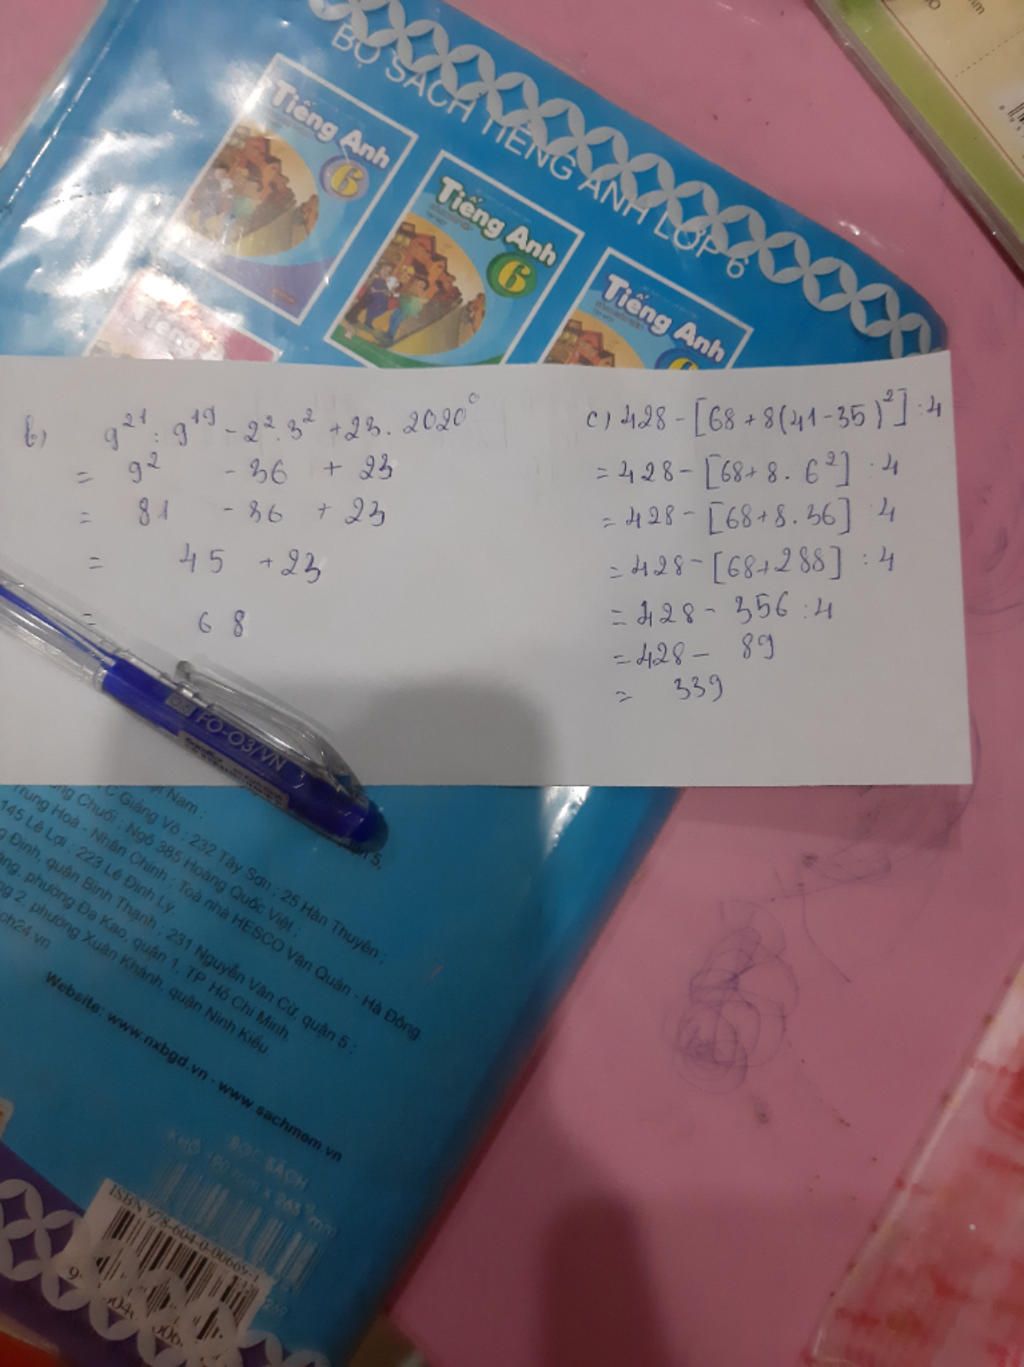 BỘ SÁCH TIẾNG ANH LỚP 6
Tiếng Anh
6
Tiếng Anh
6
Tiếng Anh
Tiếng
b) 9²¹ : 9¹⁹ - 2² . 3² + 23 . 2020⁰
= 9² - 36 + 23
= 81 - 36 + 23
= 45 + 23
= 68
c) 428 - [68 + 8(41 - 35)²] : 4
= 428 - [68 + 8 . 6²] : 4
= 428 - [68 + 8 . 36] : 4
= 428 - [68 + 288] : 4
= 428 - 356 : 4
= 428 - 89
= 339
FO-O3/VN
Nam :
C Giảng Võ ; 232 Tây Sơn ; 25 Hàn Thuyên ;
Chuối ; Ngõ 385 Hoàng Quốc Việt ;
Trung Hoà - Nhân Chính ; Toà nhà HESCO Văn Quán - Hà Đông
145 Lê Lợi ; 223 Lê Đình Lý
Định, quận Bình Thạnh ; 231 Nguyễn Văn Cừ, quận 5 ;
phường Đa Kao, quận 1, TP Hồ Chí Minh
2, phường Xuân Khánh, quận Ninh Kiều
ch24.vn
Website: www.nxbgd.vn - www.sachmem.vn
ĐỌC SÁCH